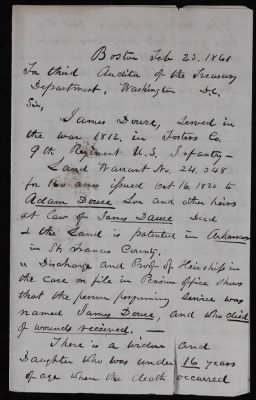 Boston Feb 23. 1861
For third Auditor of the Treasury
Department, Washington D.C.
Sir,
James Douse, served in
the war 1812, in Fosters Co.
9th Regiment U.S. Infantry—
Land Warrant No. 24,348
for 160 acres issued Oct 16, 1820 to
Adam Douse Son and other heirs
at Law of James Douse Decd
& the Land is patented in Arkansas
in St Francis County.
" Discharge and Proof of Heirship in
the case on file in Pension Office shows
that the person performing service was
named James Douse, and who died
of wounds received. —
There is a widow and
Daughter who was under 16 years
of age when the death occurred